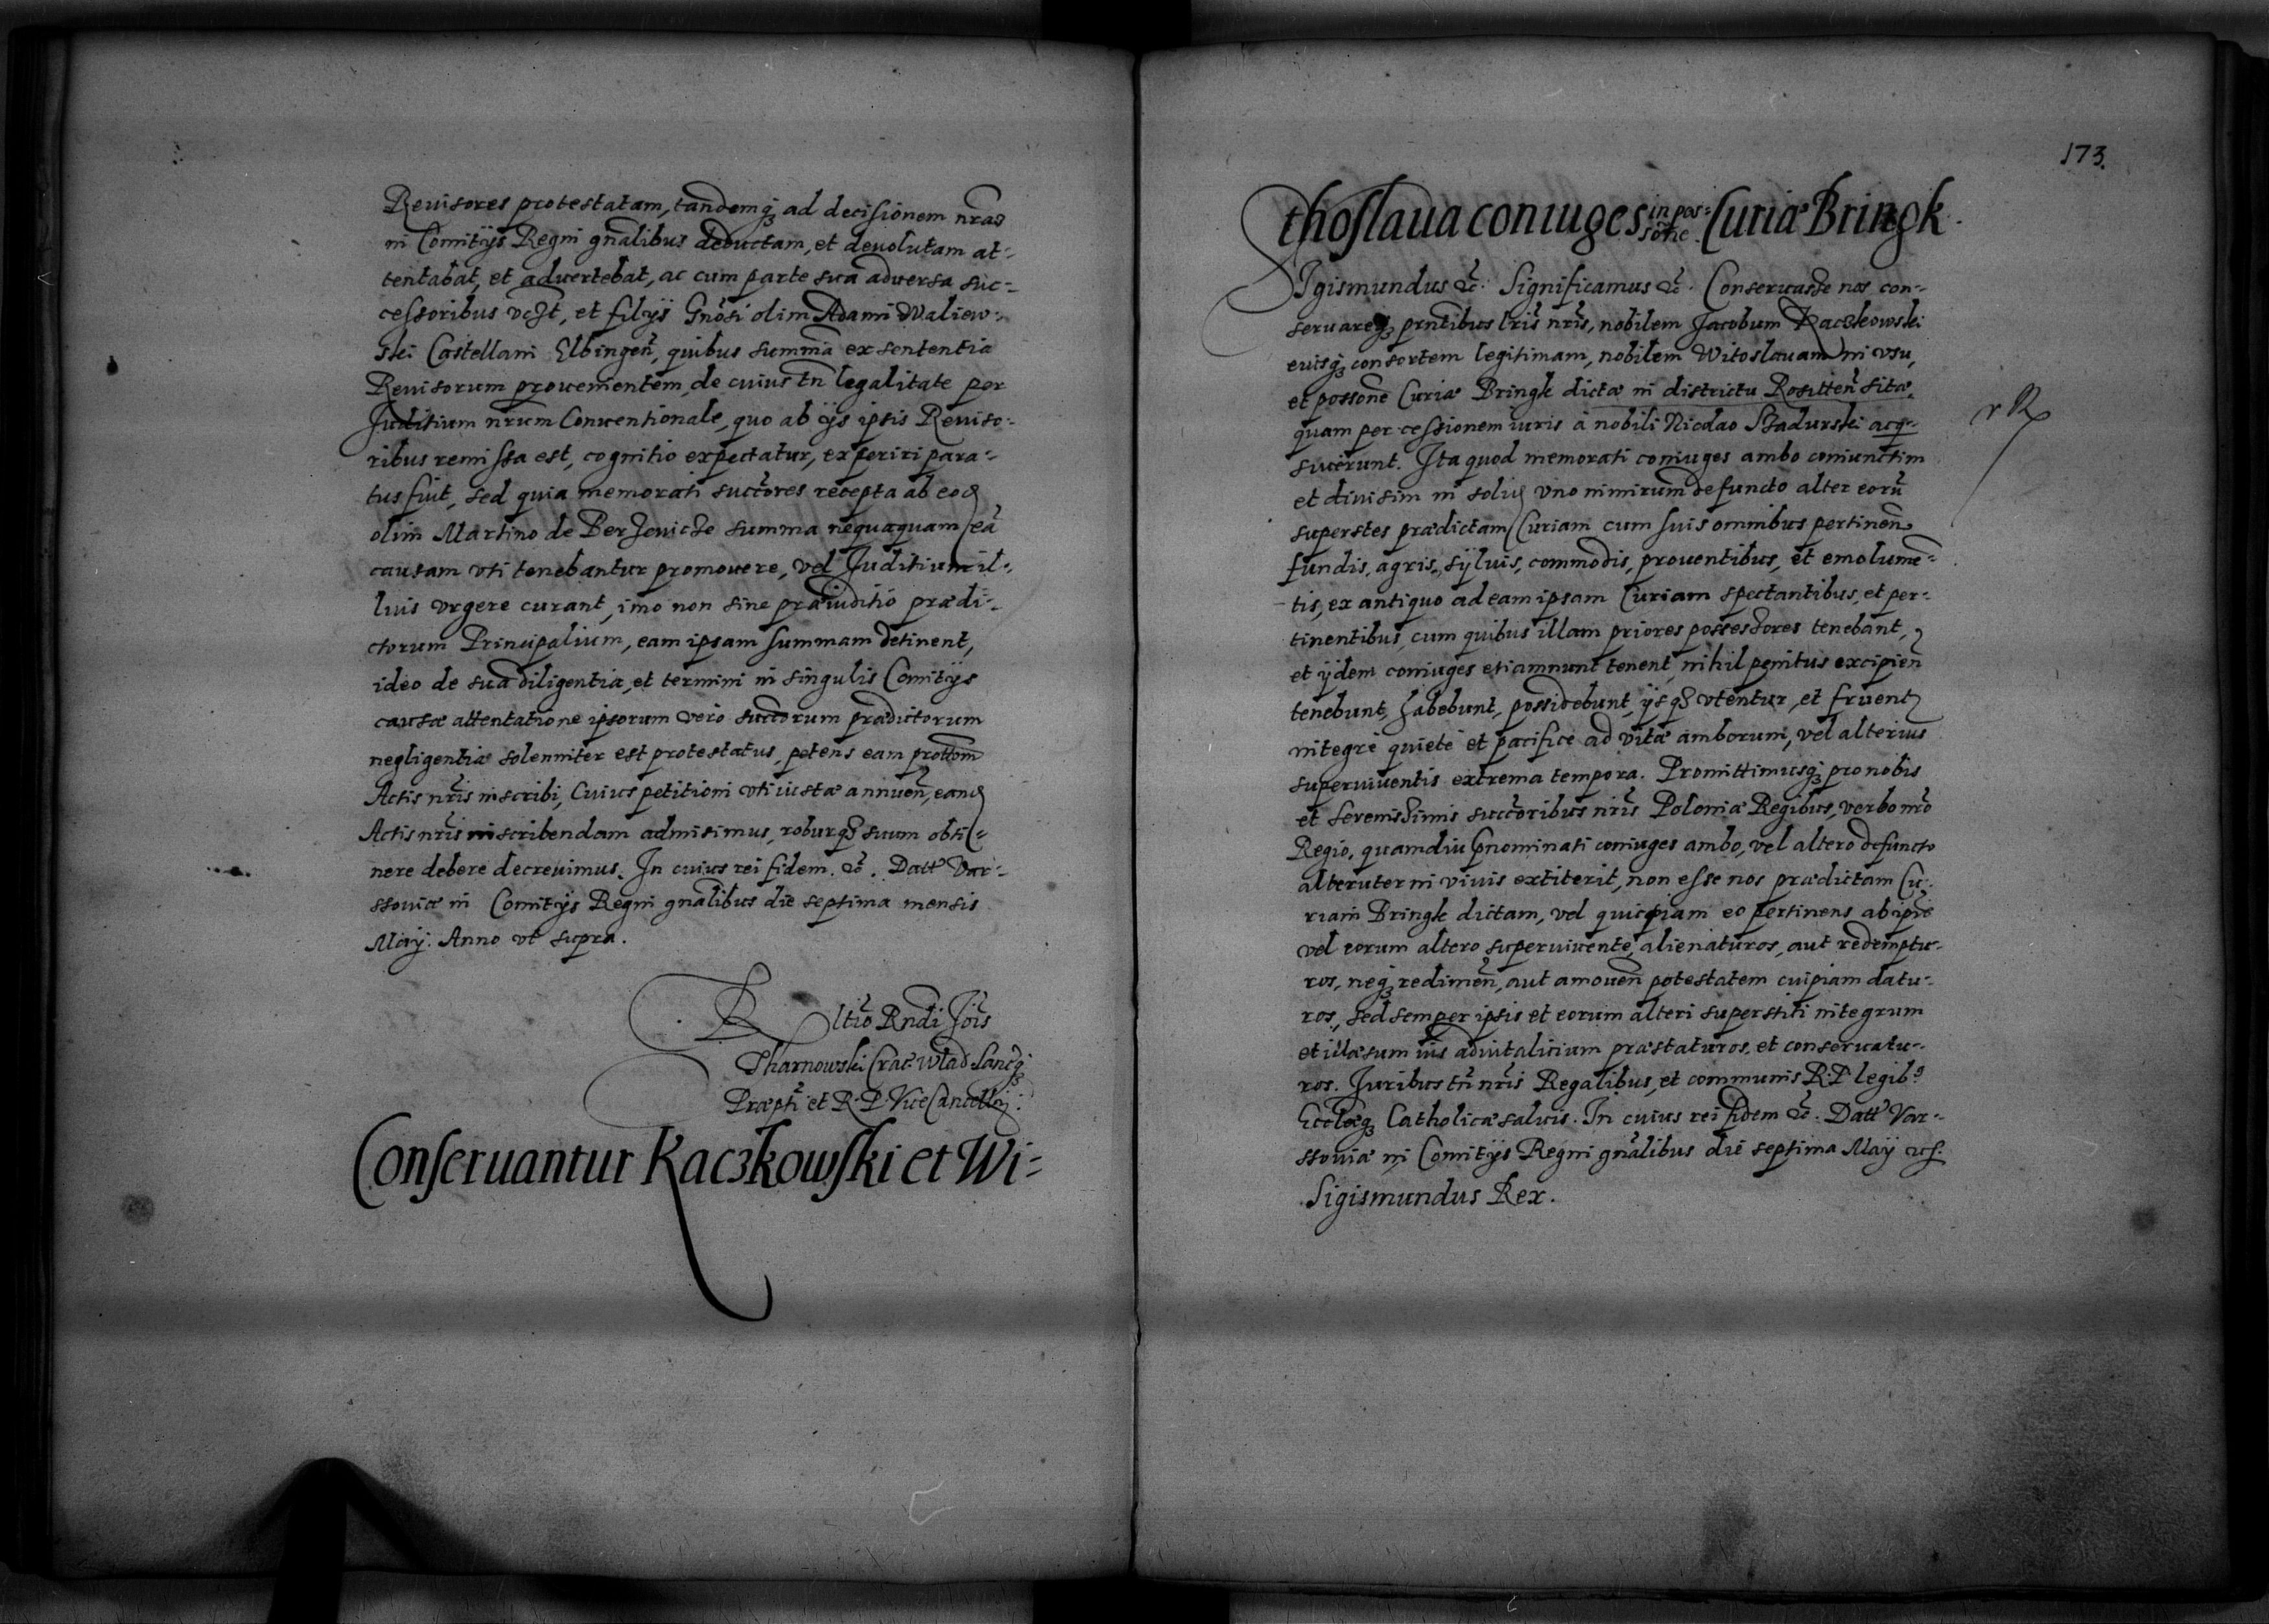 Reuisores protestatam, tandemq3 ad decisionem nrãs
in Comitijs Regni gnãlibus deductam, et deuolutam at-
tentabat, et aduertebat, ac cum parte sua aduersa suc-
cessoribus vczt, et filijs Gnõsi olim Adami Waliew-
ski Castellani Elbingeñ, quibus summa ex sententia
Reuisorum prouenientem, de cuius tñ legalitate per
Juditium nrũm Conuentionale, quo ab ijs ipsis Reuiso-
ribus remissa est, cognitio expectatur, experiri para-
tus fuit, sed quia memorati succõres recepta ab eod
olim Martino de Berzeuicze summa nequaquam eã
causam vti tenebantur promouere, vel Juditium il-
lius vrgere curant, imo non sine præiuditio prædi-
ctorum Principalium, eam ipsam summam detinent,
ideo de sua diligentia, et termini in singulis Comitijs
causæ attentatione ipsorum vero succõrum prædictorum
negligentia solenniter est protestatus, petens eam prottõm
Actis nrĩs inscribi, Cuius petitioni vti iustæ annueñ, eand
Actis nrĩs inscribendam admisimus, roburq3 suum obti-
nere debere decreuimus. In cuius rei fidem. &c. Datt Var-
ssouiæ in Comitijs Regni gnãlibus die septima mensis
Maij. Anno vt supra.
Rltio Rndi Jois
Tharnowski Crac: Wlad. Lancq3
Præpti et R. P. ViceCancellrij
Conseruantur Kaczkowski et Wi-
173.
thoslaua coniuges in pos-
sõne Curiæ Bringk.
Sigismundus &c. Significamus &c. Conseruasse nos con-
seruareq3 prñtibus lrĩs nrĩs, nobilem Jacobum Kaczkowski
eiusq3 consortem legitimam, nobilem Witoslauam in vsu,
et possõne Curiæ Bringk dictæ in districtu Rositteñ sitæ,
r R
quam per cessionem iuris à nobili Nicolao Szadurski acq-
siuerunt. Ita quod memorati coniuges ambo coniunctim
et diuisim in solid vno nimirum defuncto alter eorũ
superstes prædictam Curiam cum suis omnibus pertineñ
fundis, agris, syluis, commodis, prouentibus, et emolumẽ-
tis, ex antiquo ad eam ipsam Curiam spectantibus, et per-
tinentibus, cum quibus illam priores possessores tenebant,
et ijdem coniuges etiamnunc tenent, nihil penitus excipieñ
tenebunt, habebunt, possidebunt, ijsq3 vtentur, et fruent
integrè quietè et pacificè ad vitæ amborum, vel alterius
superuiuentis extrema tempora. Promittimusq3 pro nobis
et Serenissimis succõribus nrĩs Poloniæ Regibus, verbo nrõ
Regio, quamdiu pnominati coniuges ambo, vel altero defuncto
alteruter in viuis extiterit, non esse nos prædictam Cu-
riam Bringk dictam, vel quicpiam eo pertinens ab ipsis
vel eorum altero superuiuente, alienaturos, aut redemptu-
ros, neq3 redimeñ, aut amoueñ potestatem cuipiam datu-
ros, sed semper ipsis et eorum alteri superstiti integrum
et illæsum ius aduitalicium præstaturos, et conseruatu-
ros. Juribus tñ nrĩs Regalibus, et communis R. P. legib9
Ecclæq3 Catholicæ saluis. In cuius rei fidem &c. Datt Var-
ssouiæ in Comitijs Regni gnãlibus die septima Maij vts.
Sigismundus Rex.